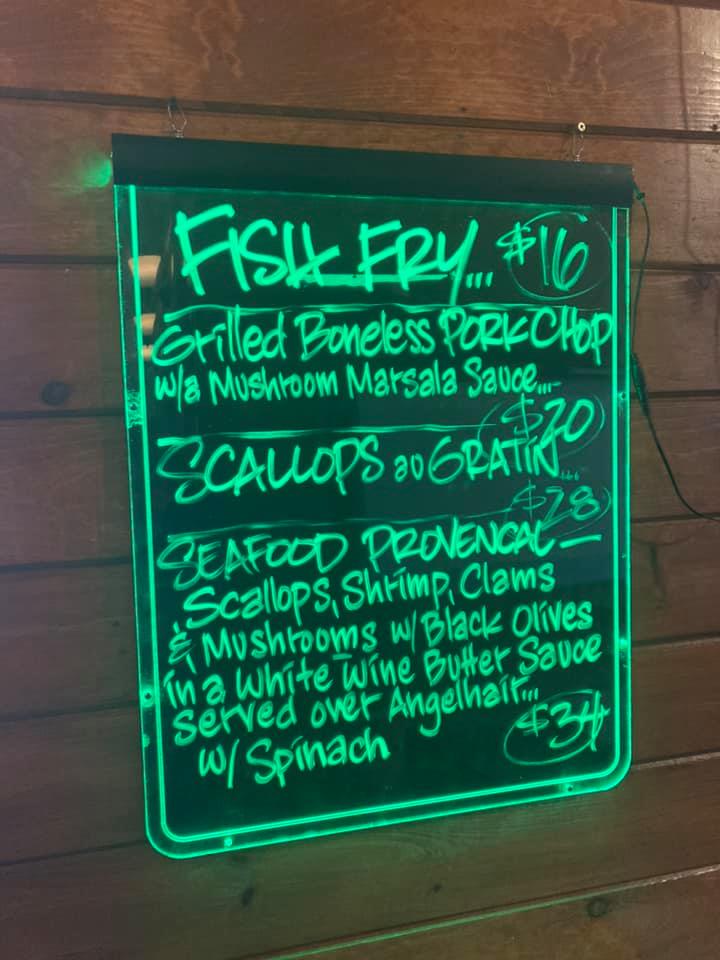 FISH FRY... $16
Grilled Boneless PORK CHOP
w/a Mushroom Marsala Sauce...
$20
SCALLOPS au GRATIN...
$28
SEAFOOD PROVENCAL—
Scallops, Shrimp, Clams
& Mushrooms w/ Black Olives
in a White Wine Butter Sauce
served over Angelhair...
$34
w/ Spinach